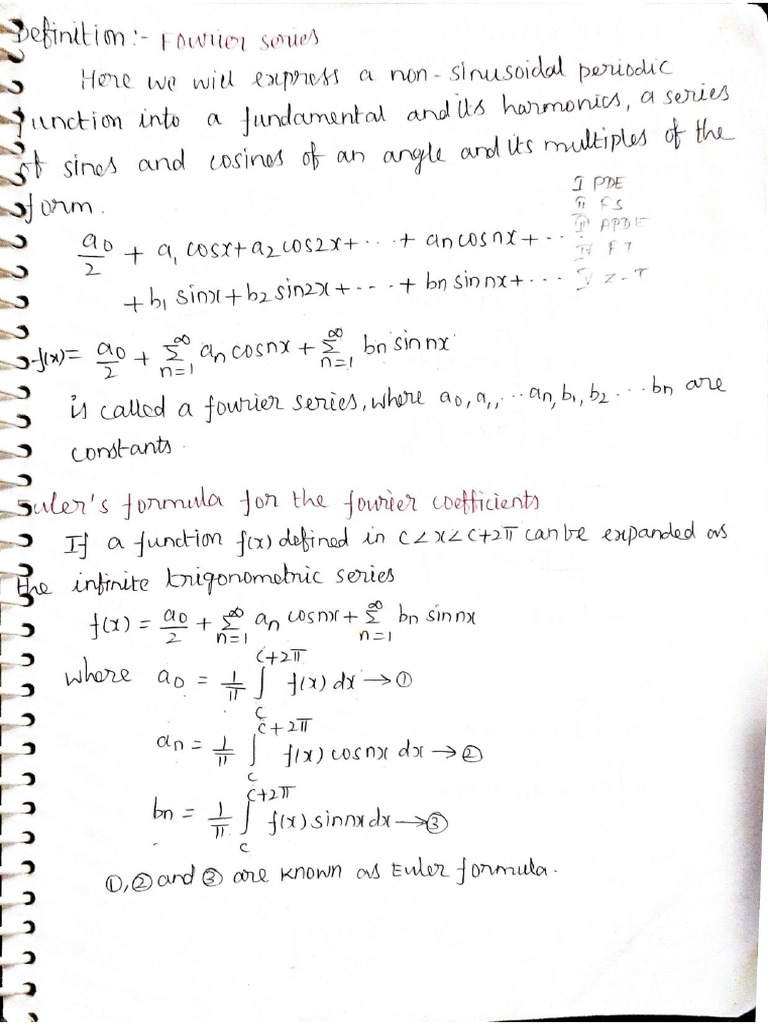 Definition:- Fourier series
Here we will express a non-sinusoidal periodic
function into a fundamental and its harmonics, a series
of sines and cosines of an angle and its multiples of the
form.
I PDE
II FS
III APDE
IV FT
V Z-T
a0/2 + a1 cosx + a2 cos2x + ... + an cosnx + ...
+ b1 sinx + b2 sin2x + ---- + bn sin nx + ...
f(x) = a0/2 + ∞Σn=1 an cosnx + ∞Σn=1 bn sin nx
is called a fourier series, where a0, a1, ... an, b1, b2 ... bn are
constants.
Euler's formula for the fourier coefficients
If a function f(x) defined in c<x<c+2π can be expanded as
the infinite trigonometric series
f(x) = a0/2 + ∞Σn=1 an cosnx + ∞Σn=1 bn sin nx
where a0 = 1/π ∫c^c+2π f(x) dx → ①
an = 1/π ∫c^c+2π f(x) cosnx dx → ②
bn = 1/π ∫c^c+2π f(x) sin nx dx → ③
①, ② and ③ are known as Euler formula.